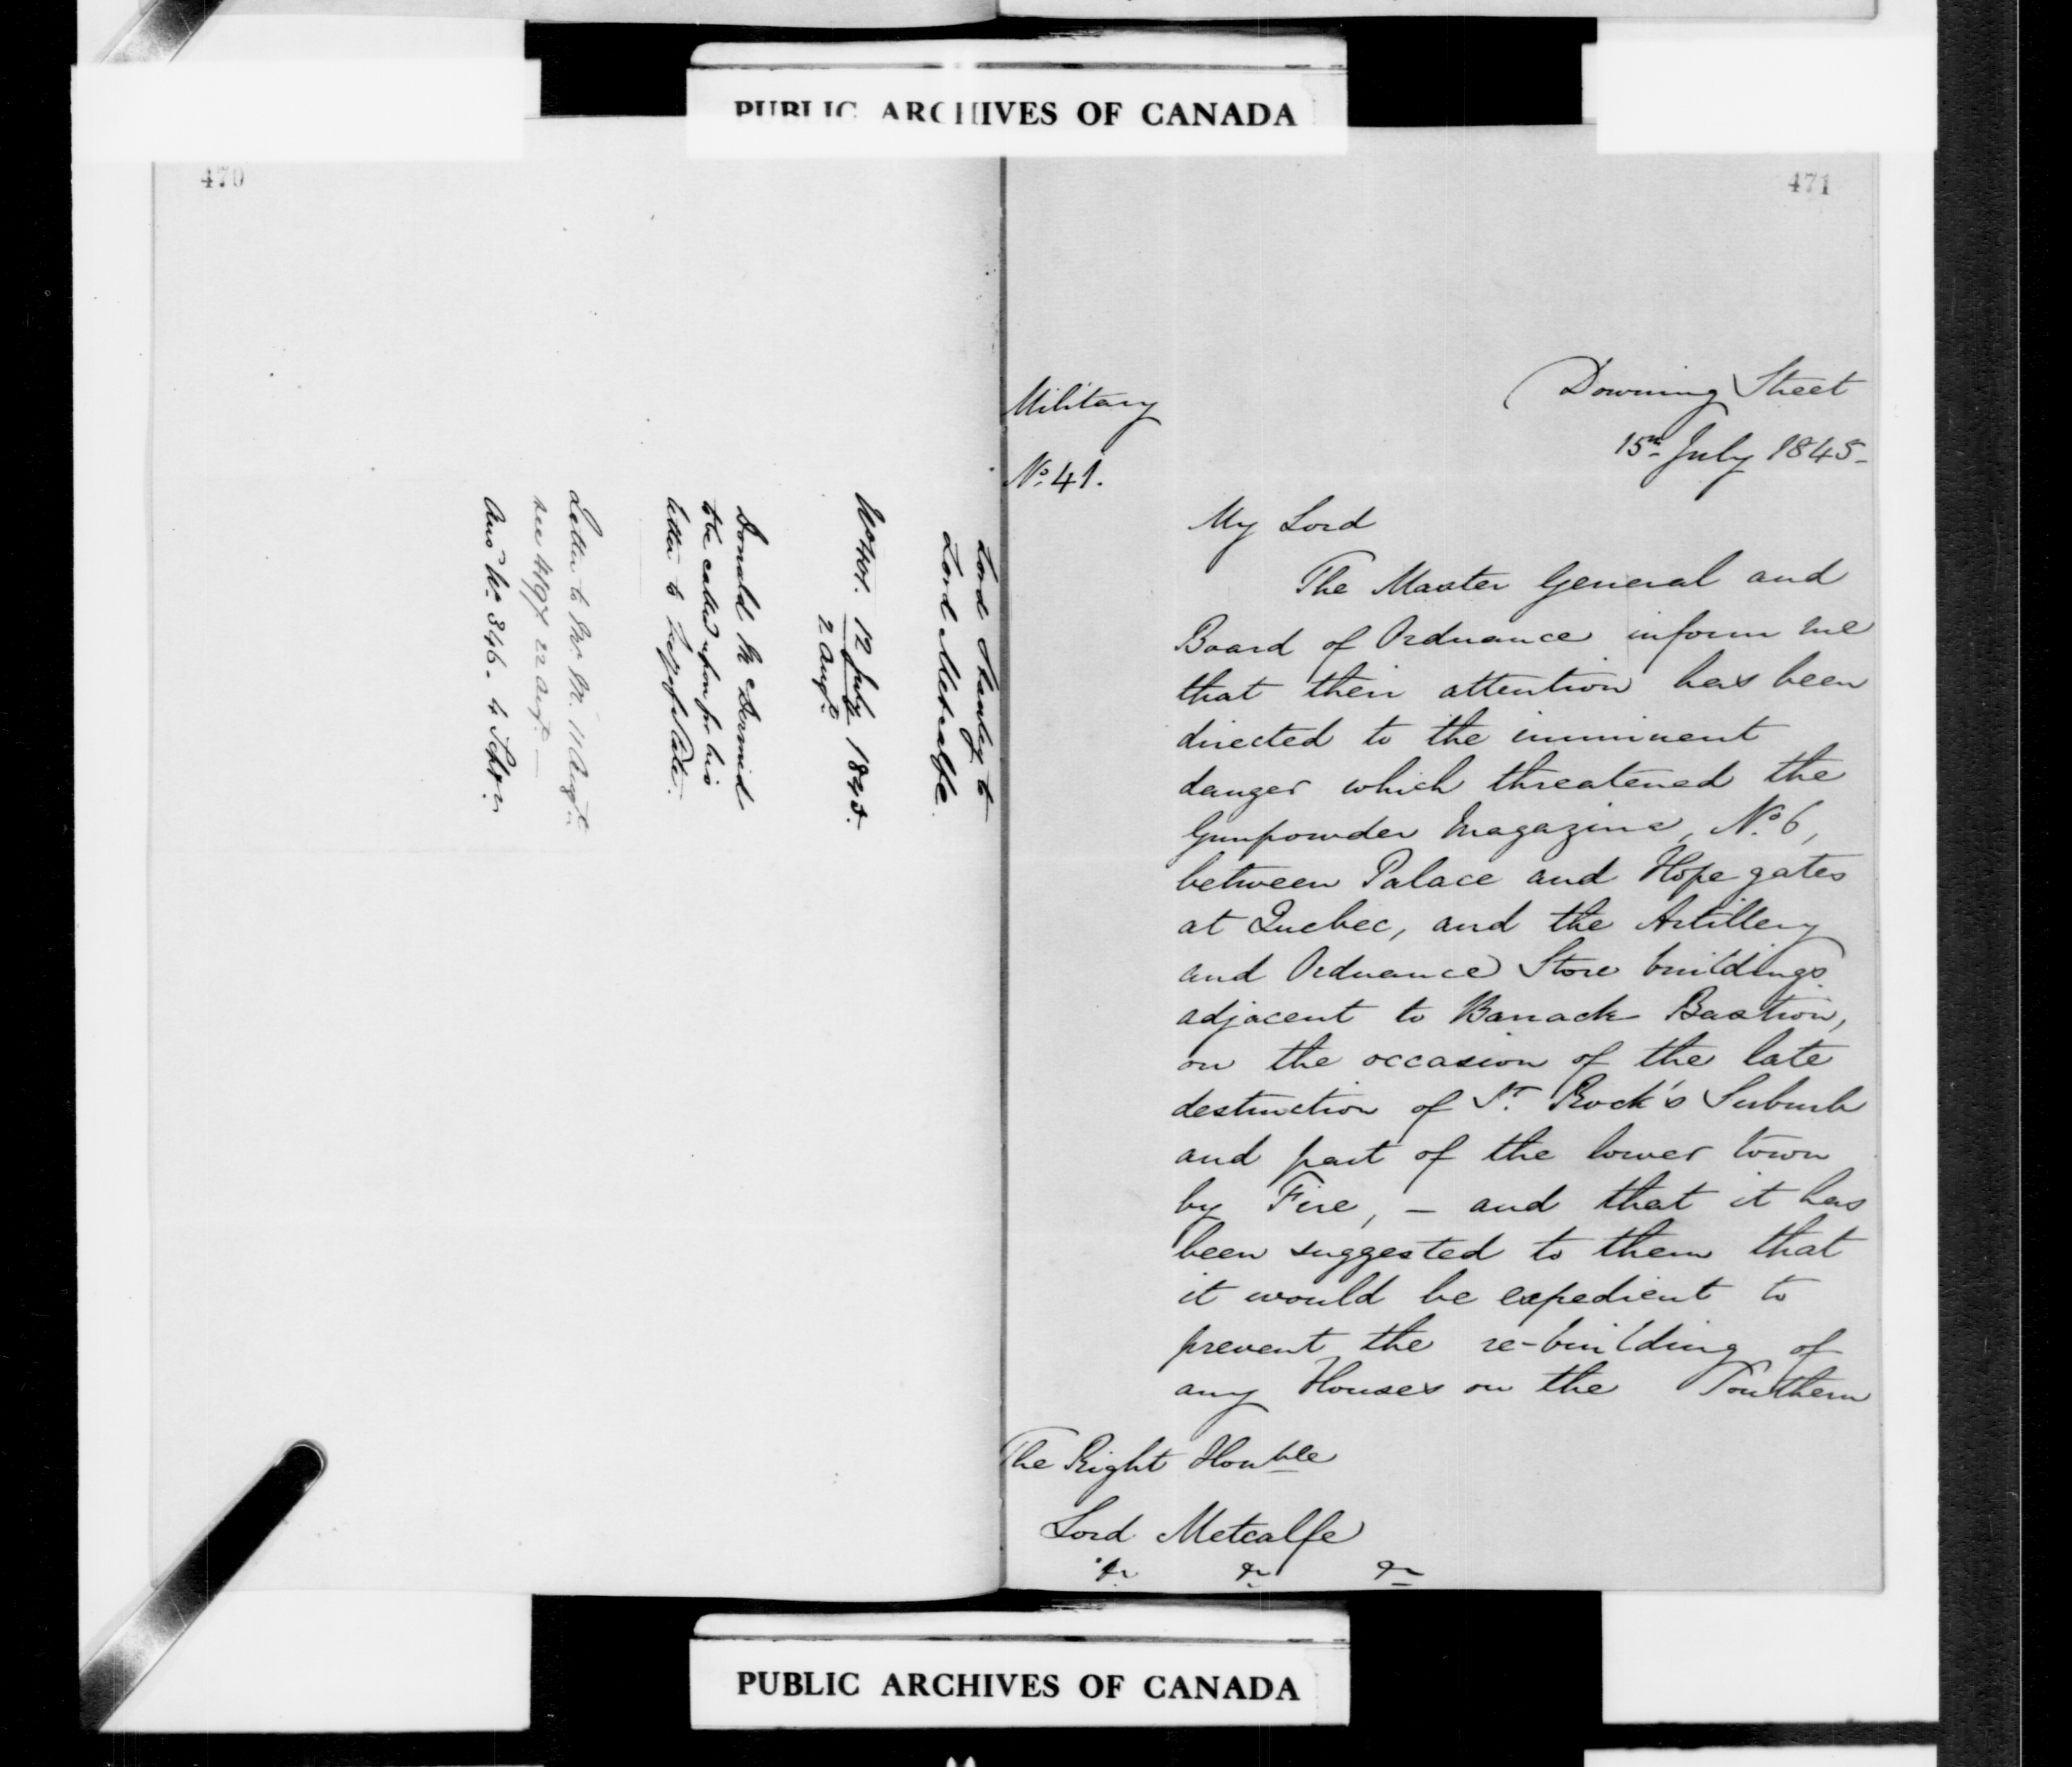 PUBLIC ARCHIVES OF CANADA
470
Lord Stanley to
Lord Metcalfe.
12 July 1845.
2 Augt.
Donald McDermid
to be called upon for his
letter to
Letter to Mr. M. 11 Augt.
see 22 Augt. —
Ansd No. 346. 4 Septr.
471
Military
No. 41.
Downing Street
15th July 1845-
My Lord
The Master General and
Board of Ordnance inform me
that their attention has been
directed to the imminent
danger which threatened the
Gunpowder Magazine, No. 6,
between Palace and Hope gates
at Quebec, and the Artillery
and Ordnance Store buildings
adjacent to Barrack Bastion,
on the occasion of the late
destruction of St. Rock's Suburb
and part of the lower town
by Fire, — and that it has
been suggested to them that
it would be expedient to
prevent the re-building of
any Houses on the Southern
The Right Honble
Lord Metcalfe
&c &c &c
PUBLIC ARCHIVES OF CANADA